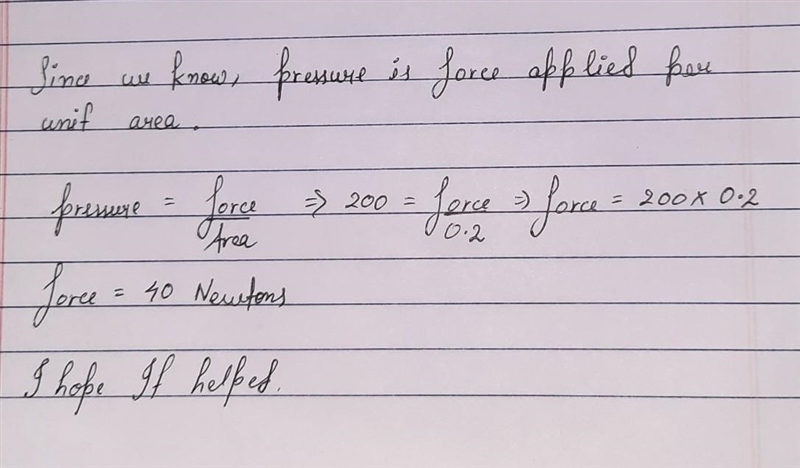 Since we know, pressure is force applied per
unit area.
pressure = force/Area ⇒ 200 = force/0.2 ⇒ force = 200 x 0.2
force = 40 Newtons
I hope It helped.